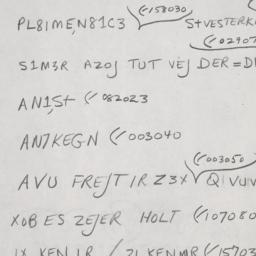 PL8IME,N81C3 (/158030 S+VESTERK
(/02907
S1M3R AZOJ TUT VEJ DER=D
AN1,S+ (/082023
AN7KEGN (/003040
(/003050
AVU FREJT IR Z3X QIVUV
XOB ES ZEJER HOLT (/107080
IX KEN IR / ZI KENMR (/15703